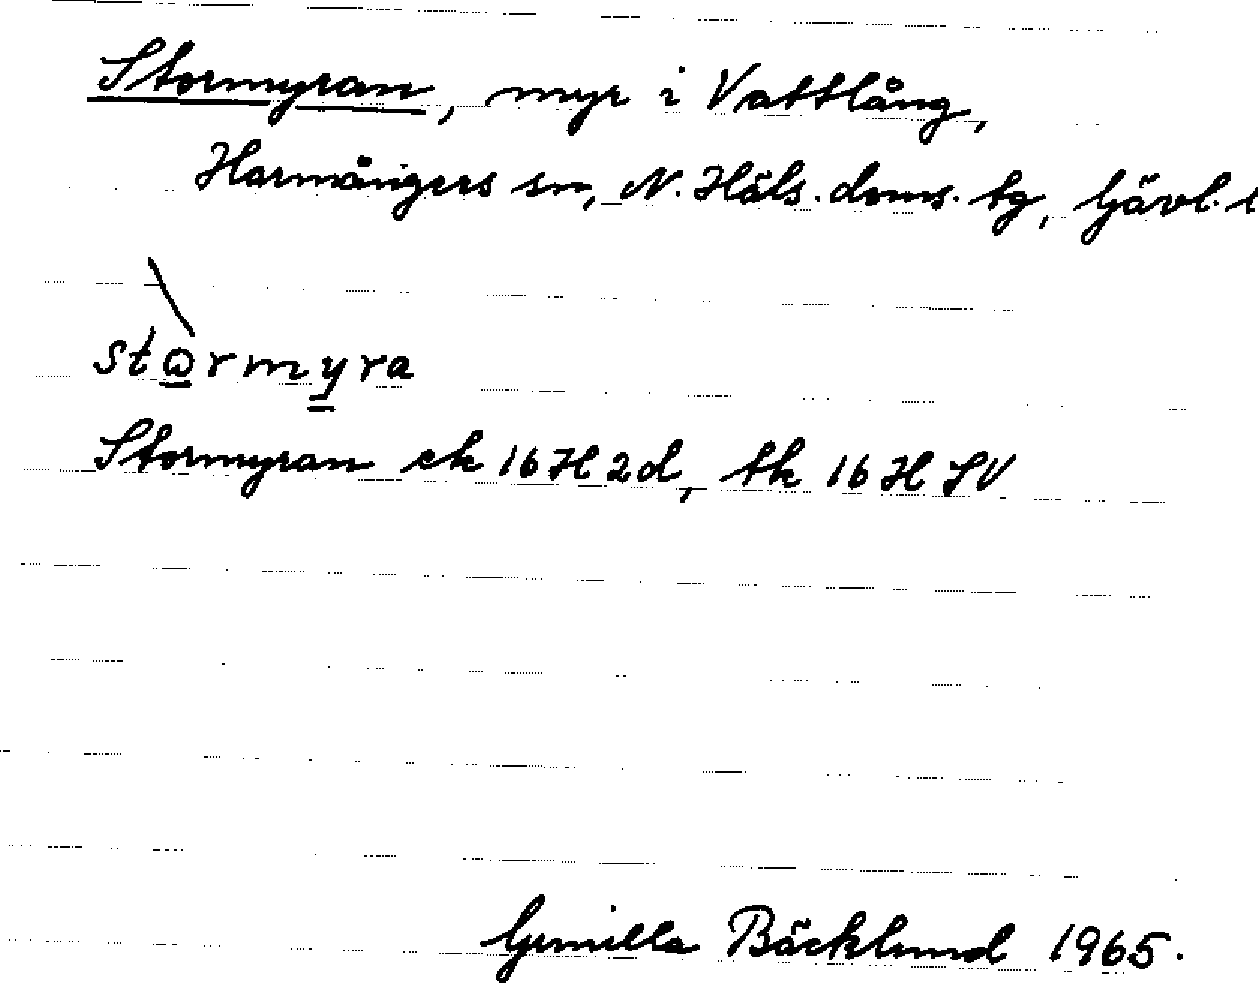 Stormyran, myr i Vattlång,
Harmångers sn, N. Häls. doms. tg, Gävl. l
stωrmyra
Stormyran ek 16H2d, tk 16H SV
Gunilla Bäcklund 1965.